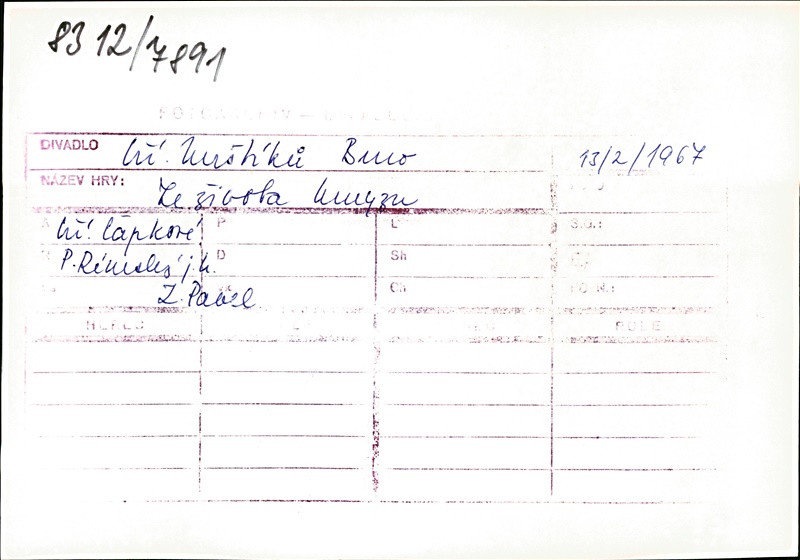 8312/7891
FOTOARCHIV
DIVADLO bří. Mrštíků Brno 13/2/1967
NÁZEV HRY: Ze života hmyzu
A bří. Čapkové P L S.O.:
R P. Rímský j.h. D Sh
Z. Pavel Ch FO N.:
HEREC ROLE HEREC ROLE